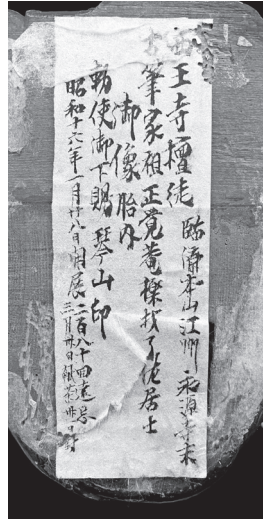 王寺檀徒 臨済本山江州永源寺末
筆家祖正覚菴櫟材了佐居士
御像胎内
勅使御下賜琴山印
昭和十六年一月廿八日開展二百八十回遠忌
三月廿日